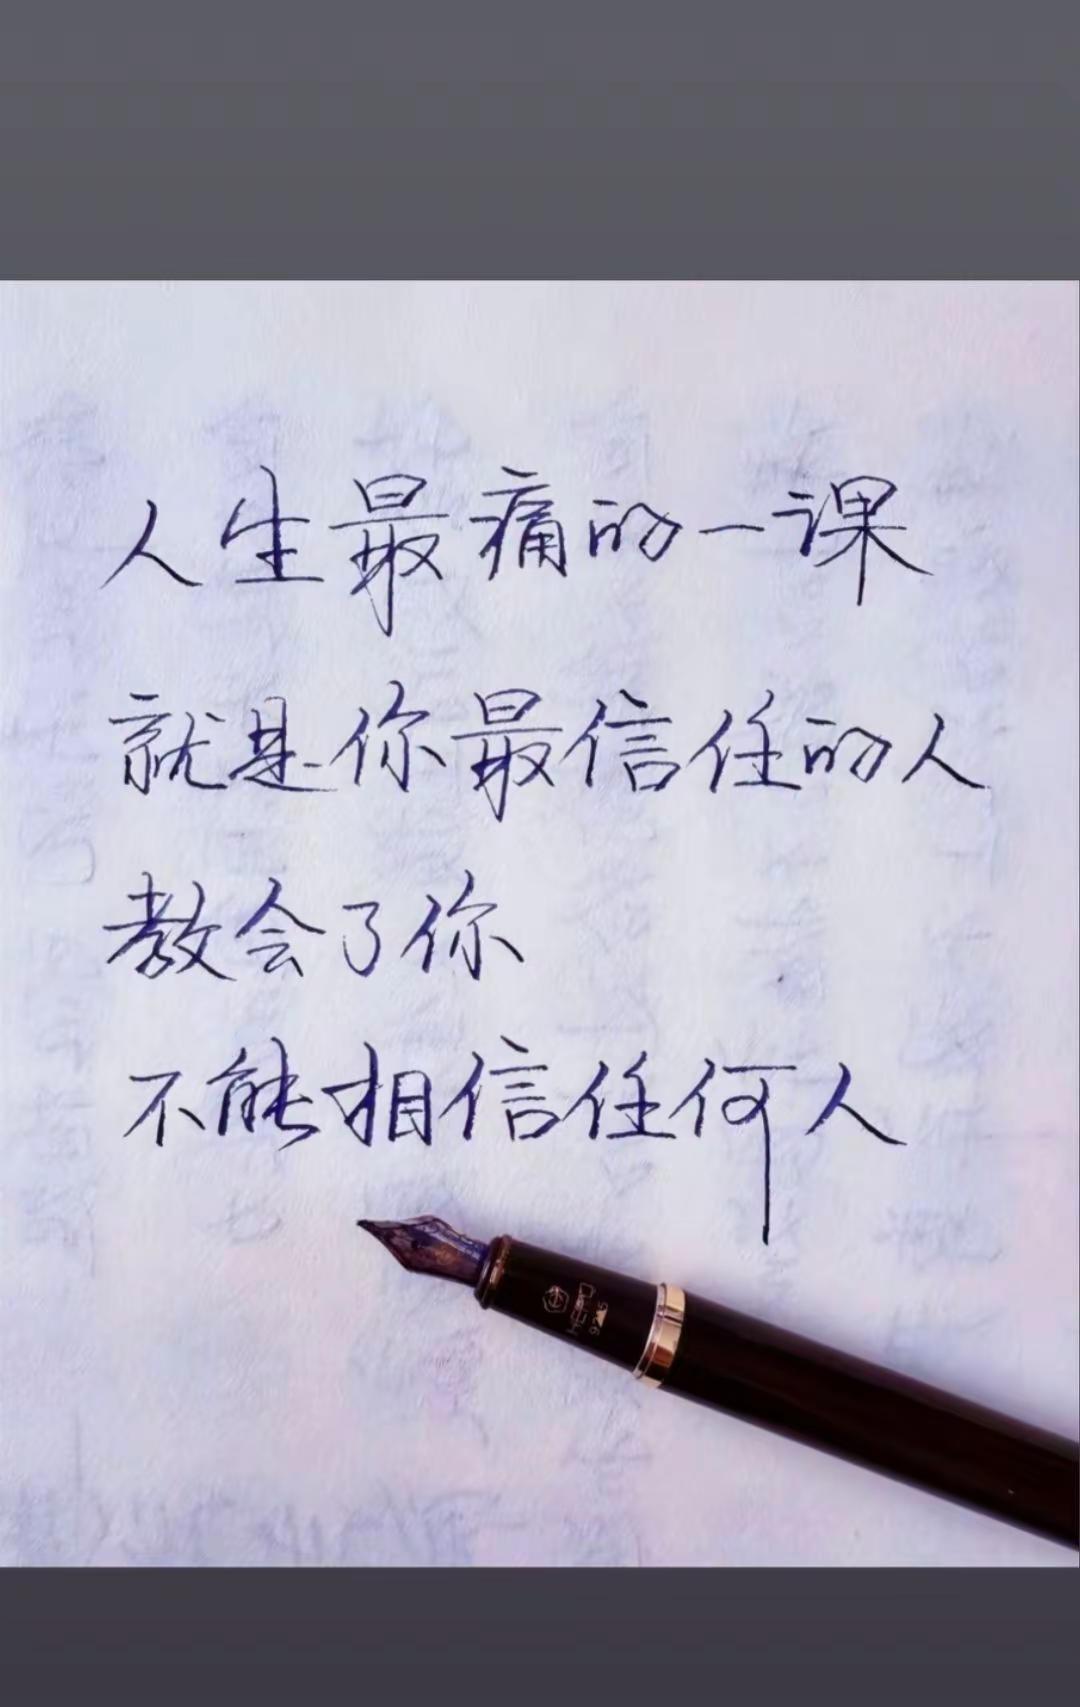 人生最痛的一课
就是你最信任的人
教会了你
不能相信任何人
HERO